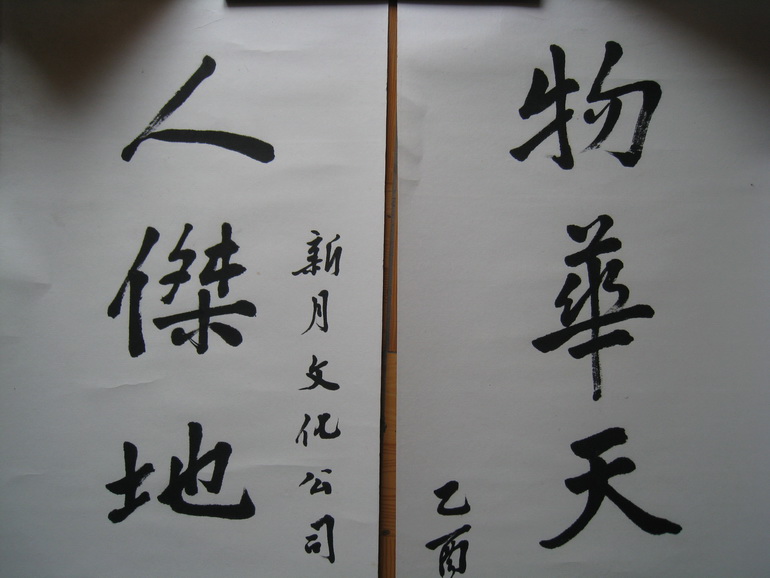 物華天
乙酉
新月文化公司
人傑地